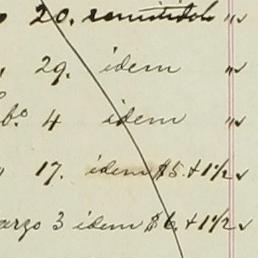 20. remitido "
29. idem "
bº 4 idem "
" 17. idem $5. + 1½
arzo 3 idem $6. + 1½